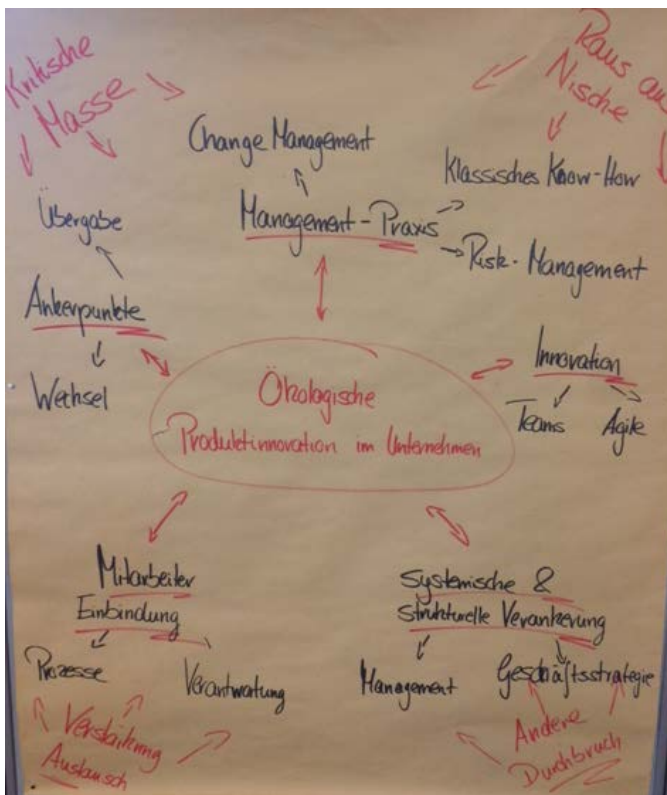 Kritische
Masse
Raus aus
Nische
Change Management
Klassisches Know-How
Management-Praxis
Risk-Management
Übergabe
Ankerpunkte
Wechsel
Innovation
Teams
Agile
Ökologische
Produktinnovation im Unternehmen
Mitarbeiter
Einbindung
Prozesse
Verantwortung
Systemische &
strukturelle Verankerung
Management
Geschäftsstrategie
Verstärkung
Austausch
Andere
Durchbruch